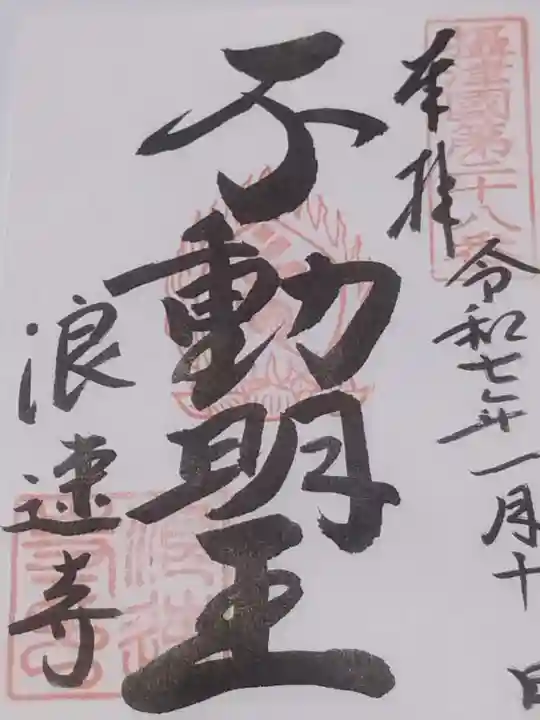 摂津國第二十八番
奉拝
令和七年一月十日
不動明王
浪速寺